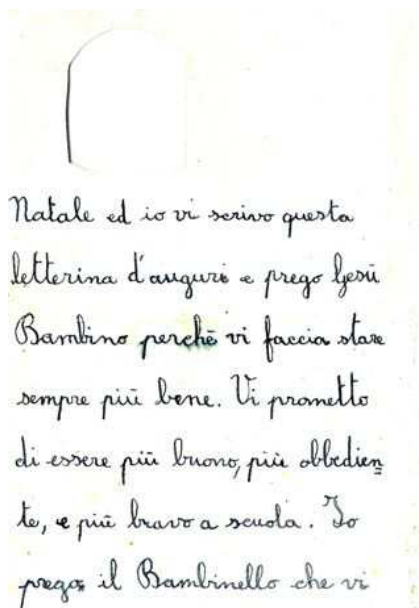 Natale ed io vi scrivo questa
letterina d'auguri e prego Gesù
Bambino perchè vi faccia stare
sempre più bene. Vi prometto
di essere più buono, più obbedien=
te, e più bravo a scuola. Io
prego il Bambinello che vi